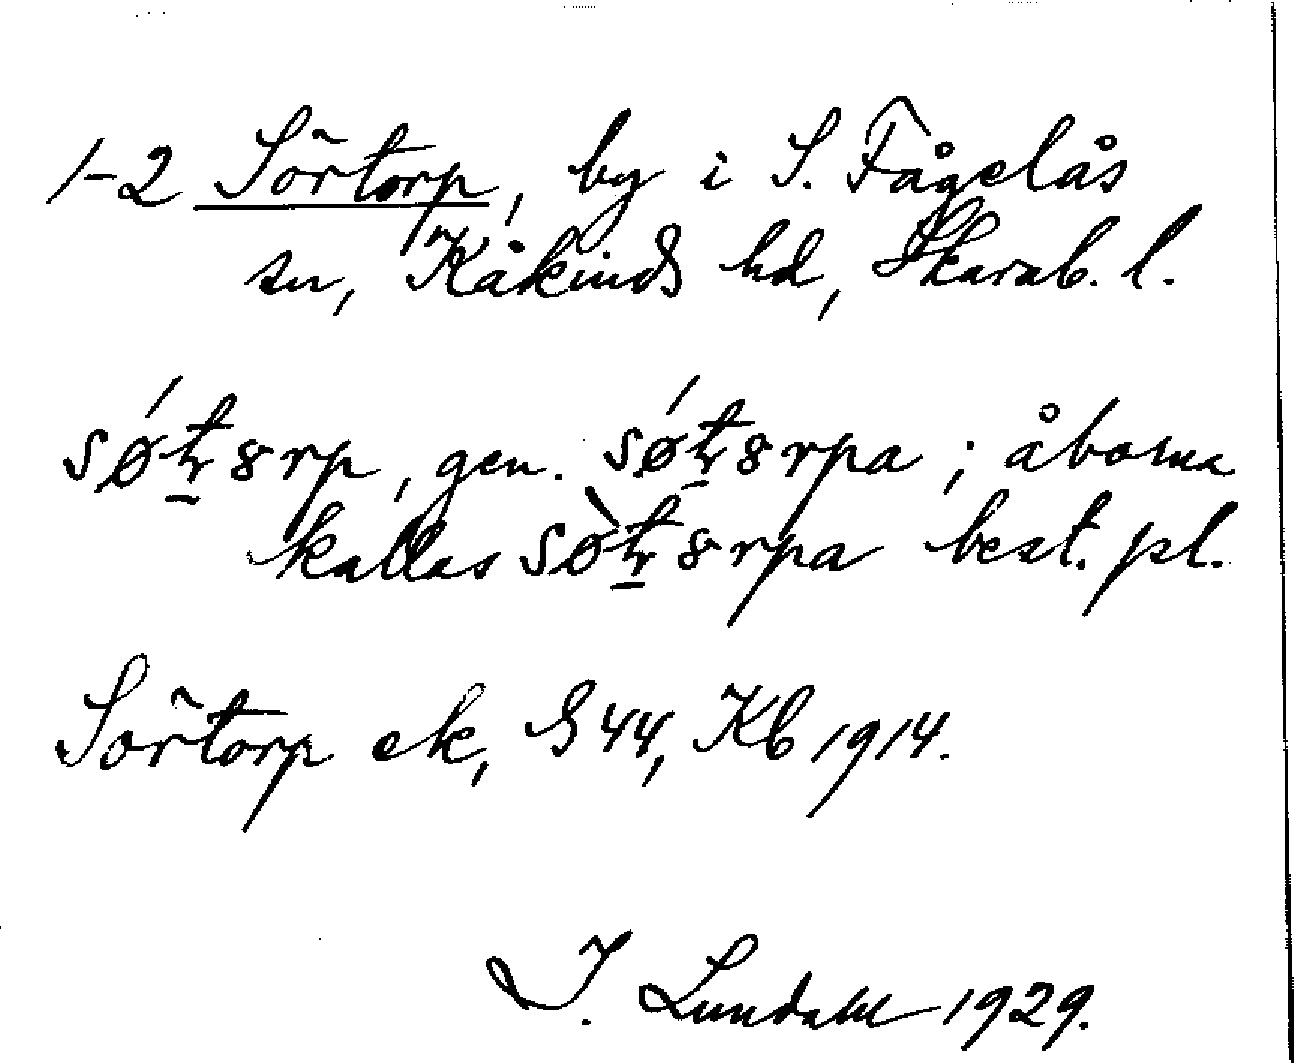 1-2 Sörtorp, by i S. Fågelås
sn, Kåkinds hd, Skarab. l.
sǿt̠r8rp, gen. sǿt̠r8rpa ; åborna
kallas sø̀t̠r8rpa best. pl.
Sörtorp ek, G 44, Kb 1914.
I. Lundahl 1929.